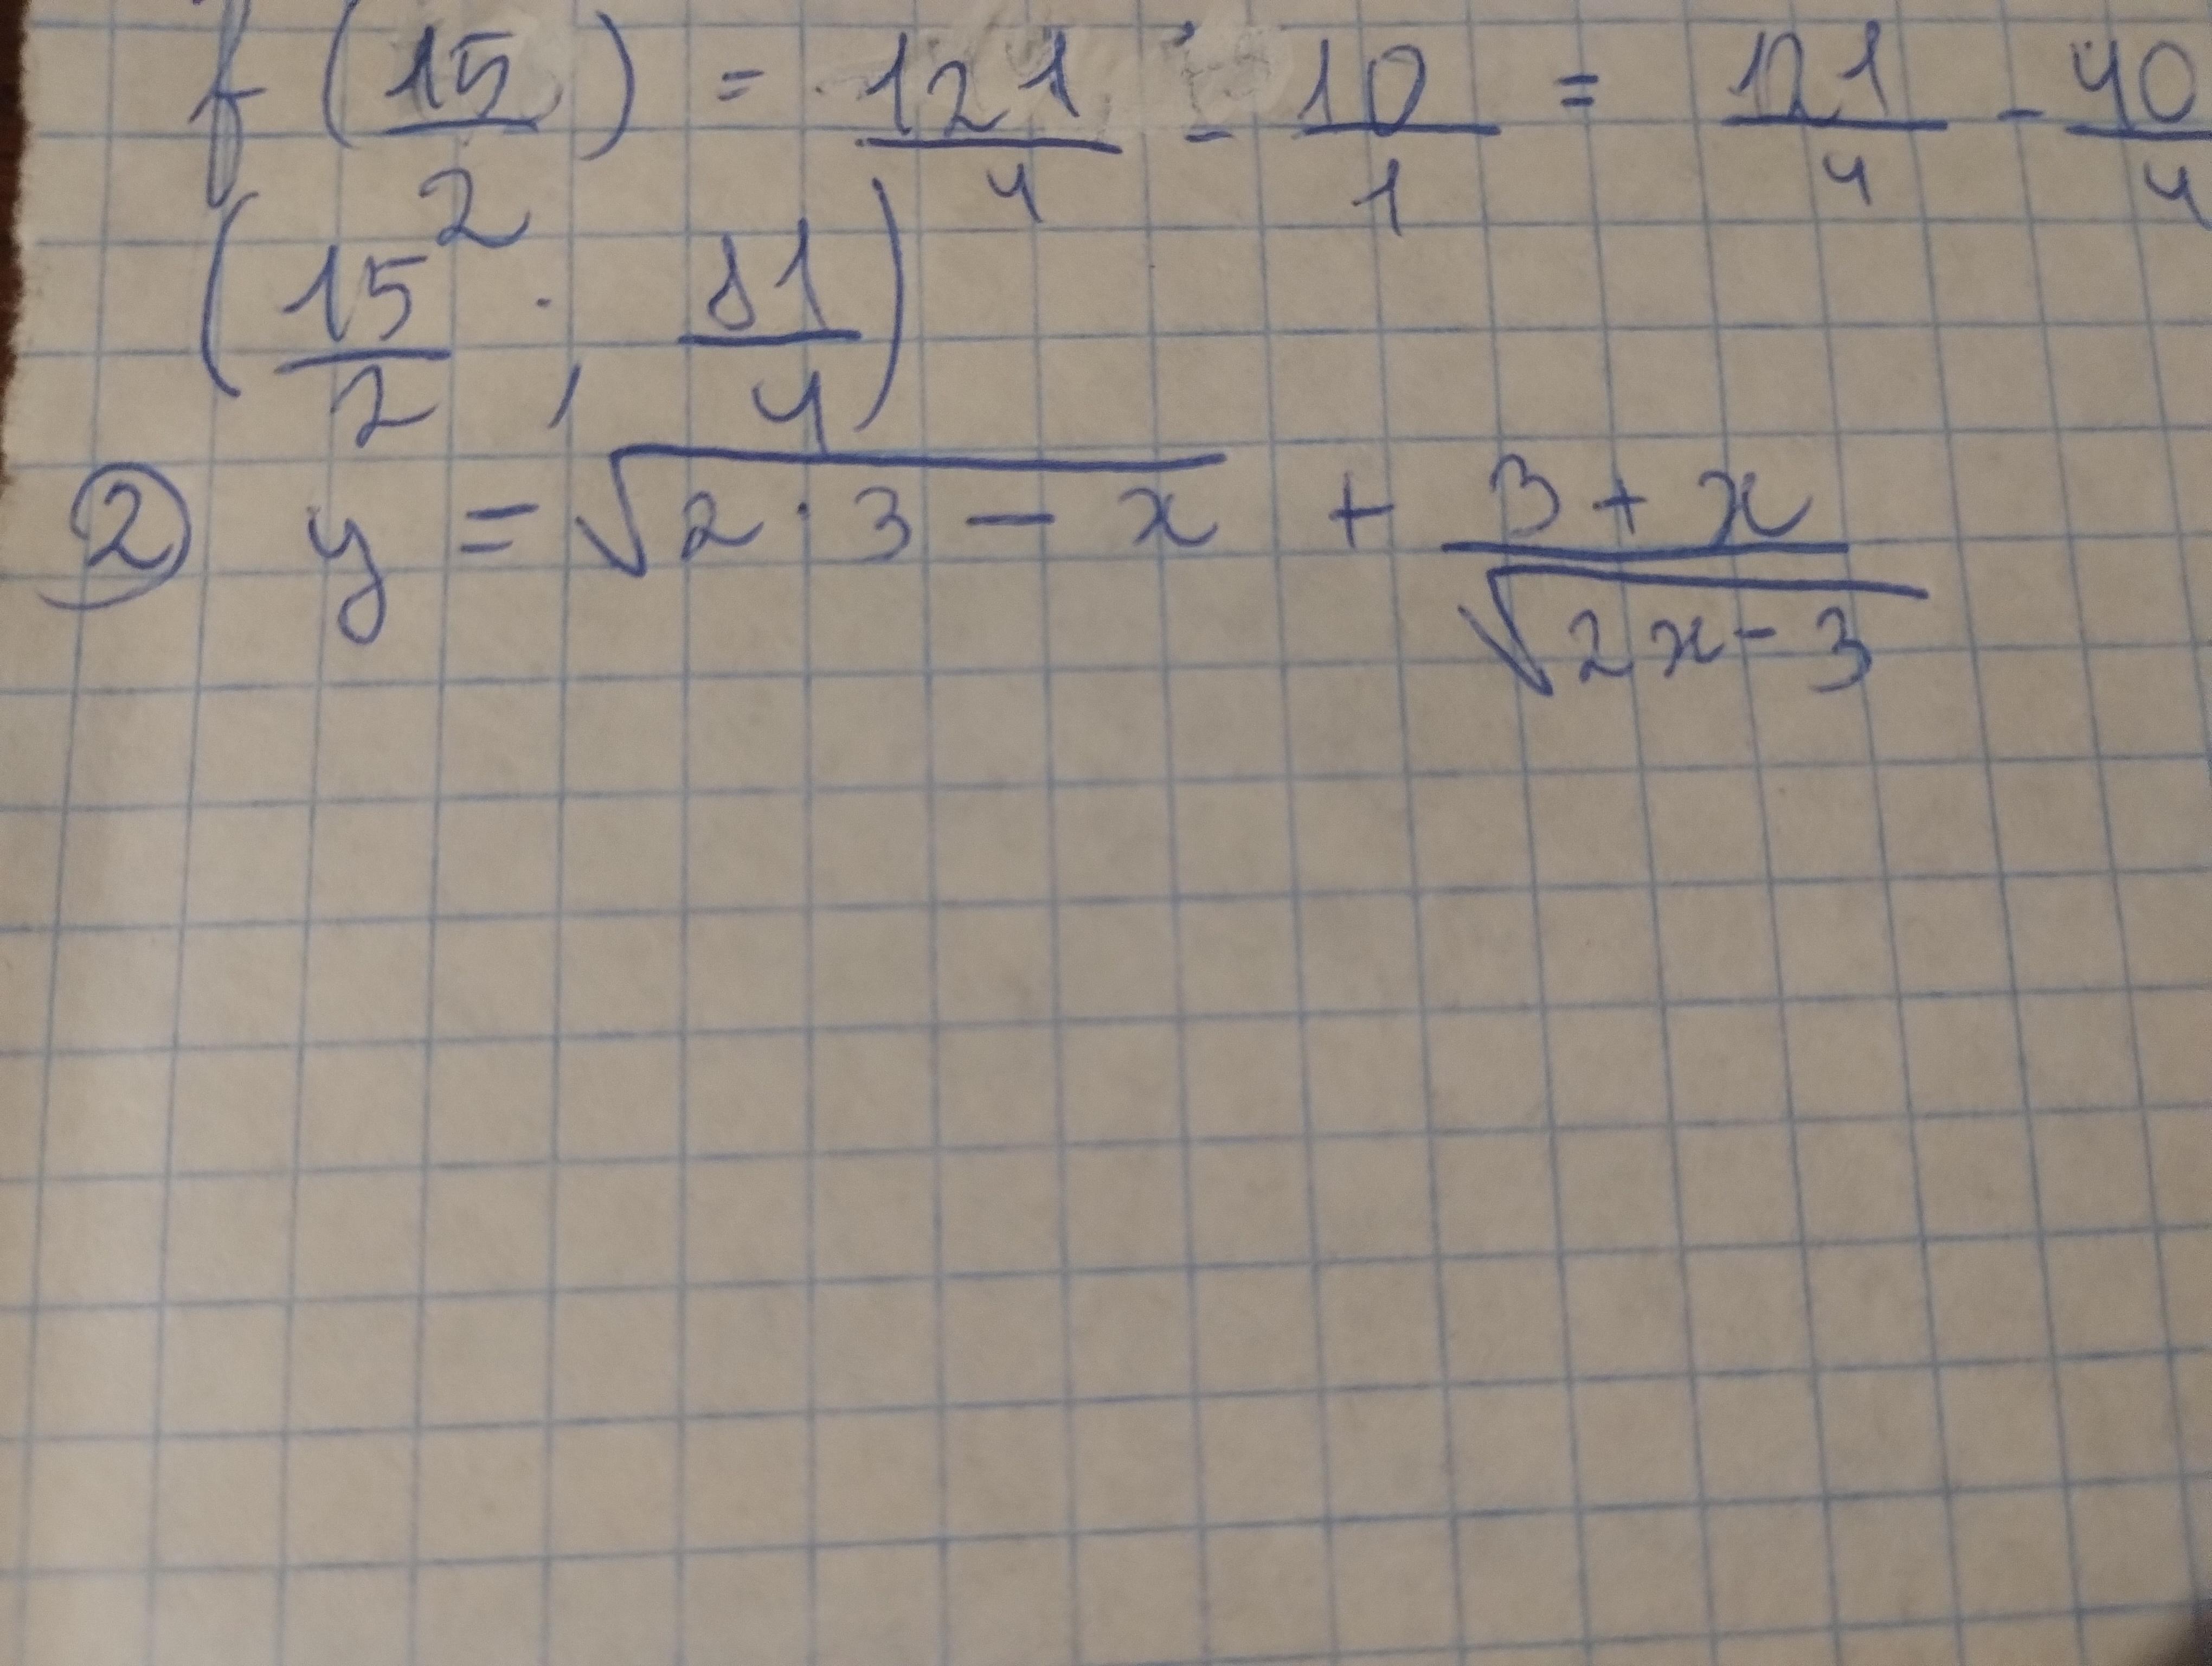 f(15/2) = 121/4 - 10/1 = 121/4 - 40/4
(15/2 ; 81/4)
② y = √(2·3 - x) + (3 + x)/√(2x - 3)